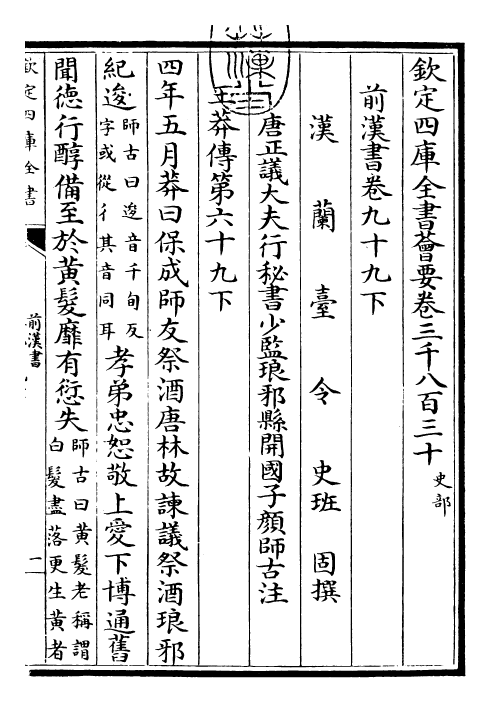 欽定四庫全書薈要卷三千八百三十 史部
前漢書卷九十九下
漢蘭臺令史班固撰
唐正議大夫行秘書少監琅邪縣開國子顔師古注
王莽傳第六十九下
四年五月莽曰保成師友祭酒唐林故諫議祭酒琅邪
紀逡師古曰逡音千旬反字或從彳其音同耳孝弟忠恕敬上愛下博通舊
聞德行醇備至於黄髮靡有愆失師古曰黄髮老稱謂白髮盡落更生黄者
欽定四庫全書
前漢書
一